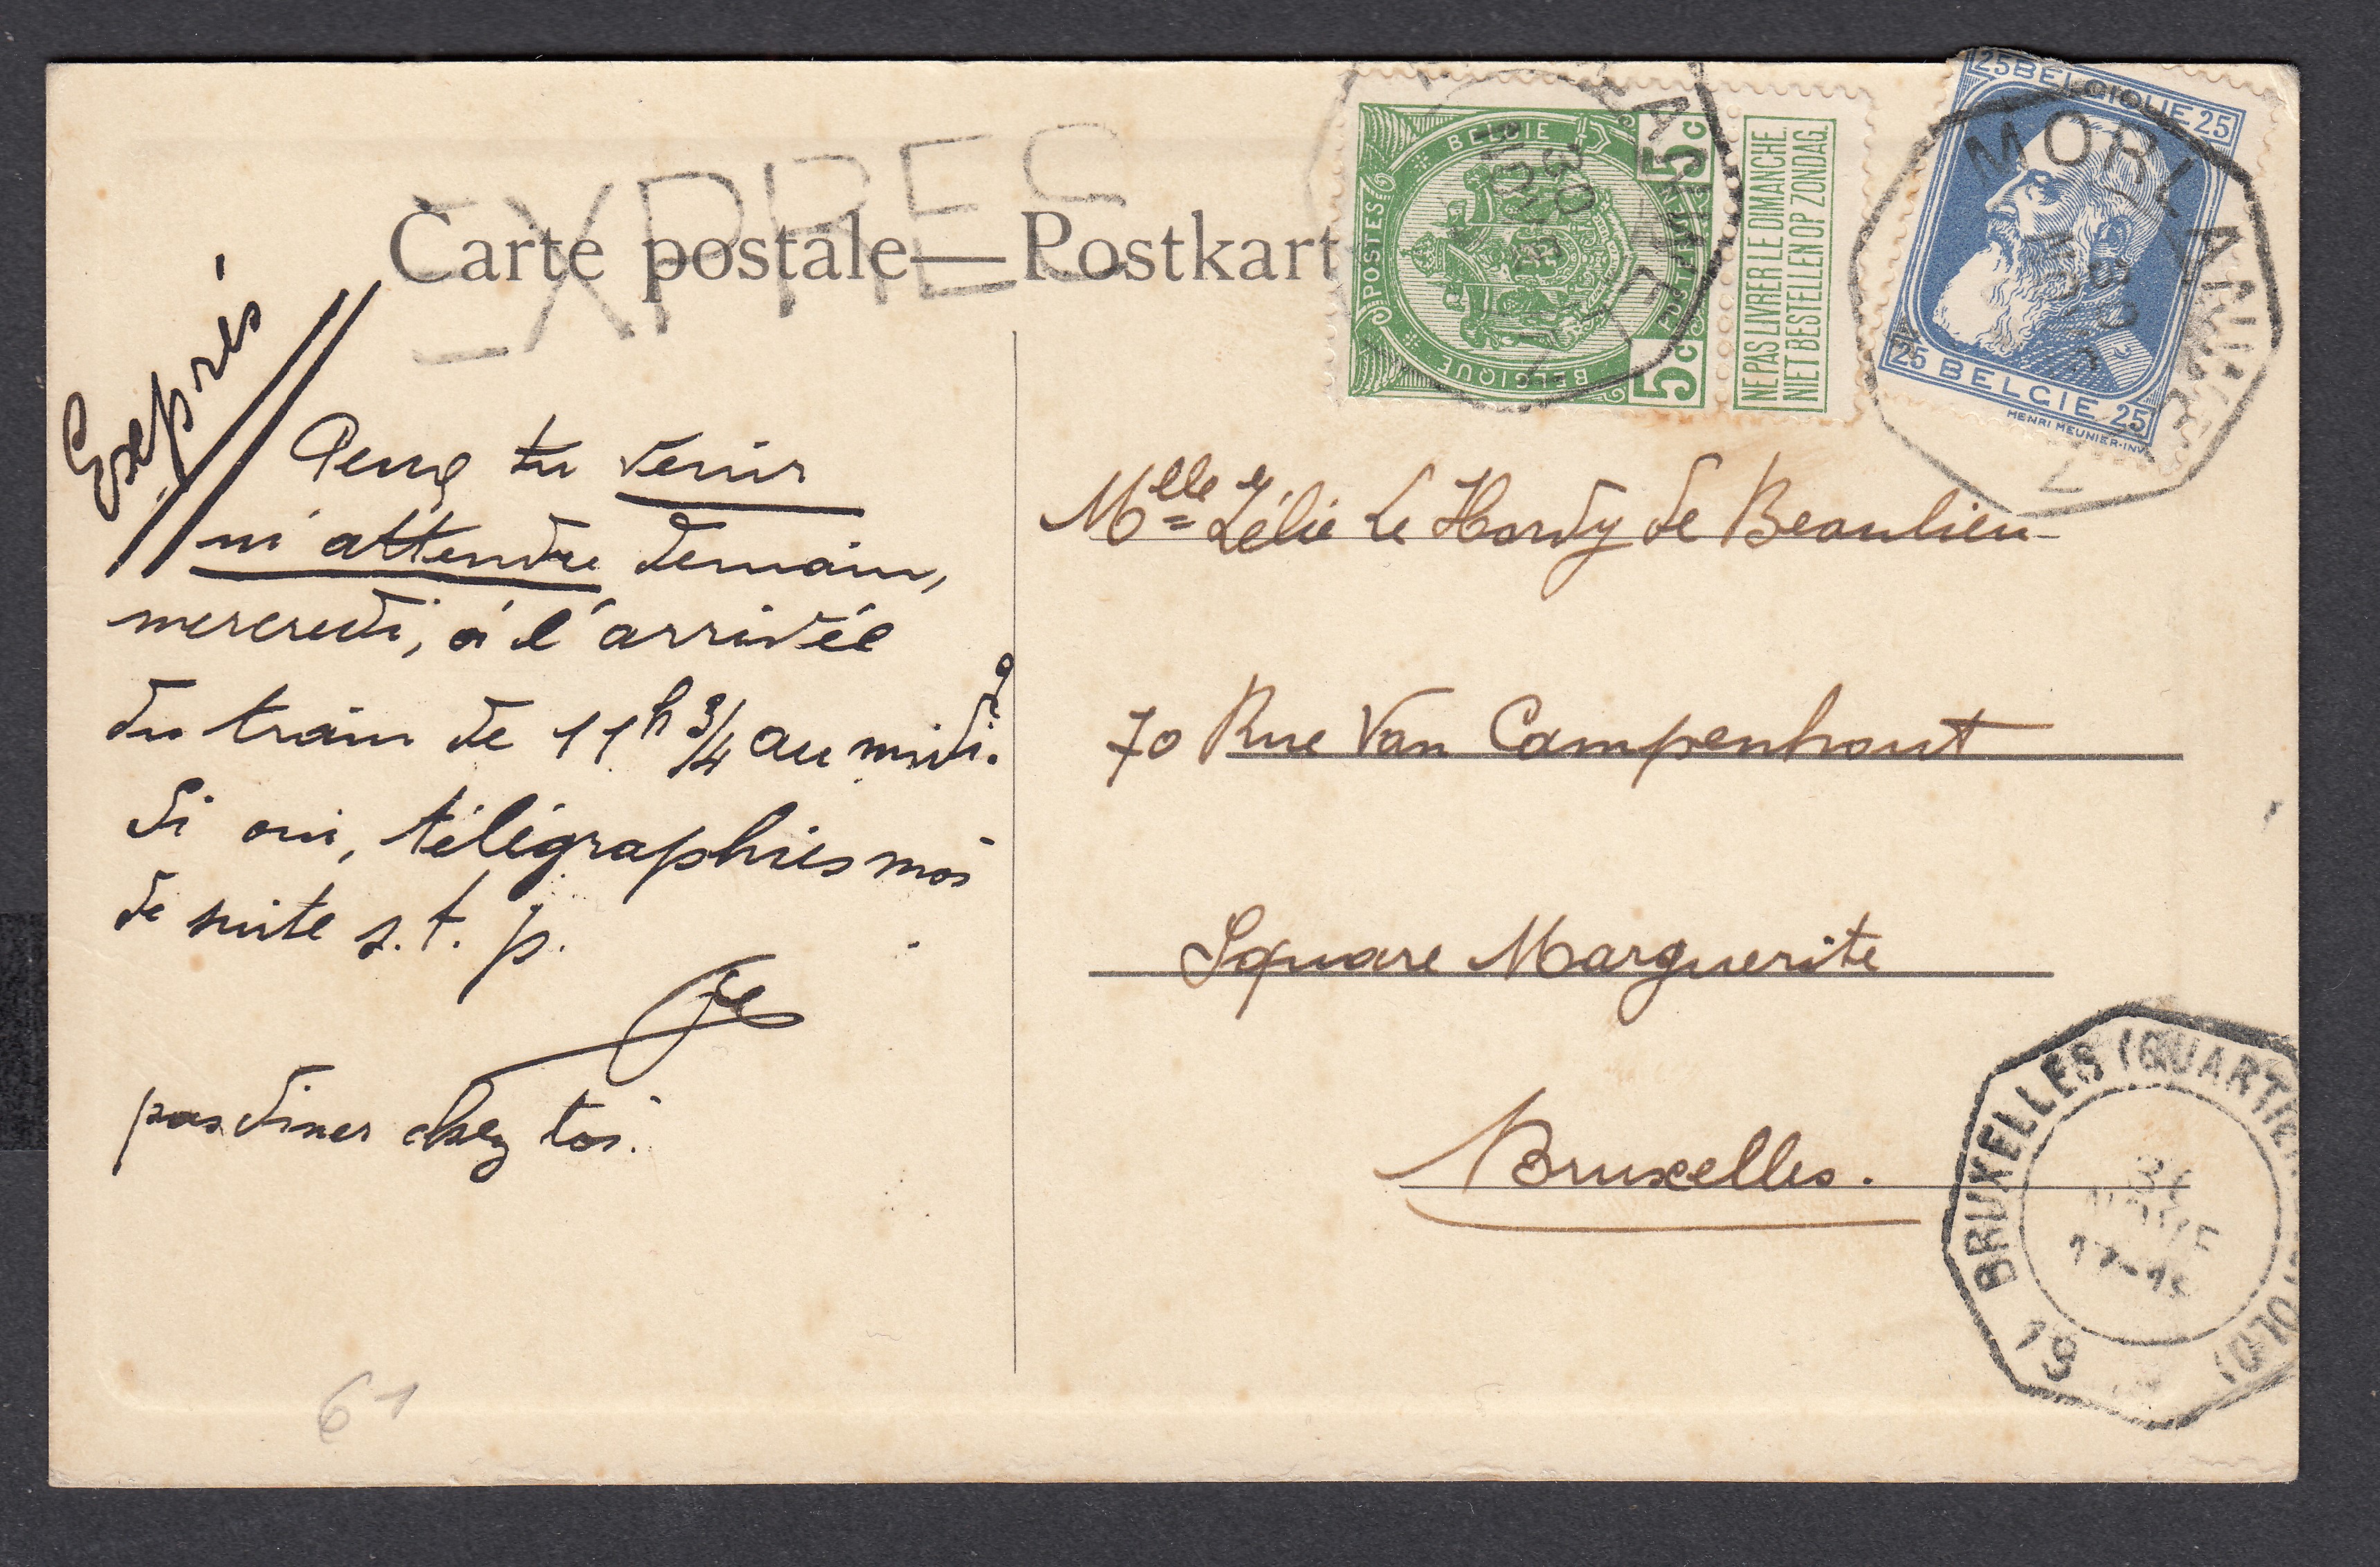 EXPRES
Carte postale — Postkart
Exprès
Peux tu venir
m'attendre demain,
mercredi, à l'arrivée
du train de 11h 3/4 au midi?
Si oui, télégraphies moi
de suite s.t.p.
pas dîner chez toi.
61
POSTES
BELGIE
BELGIQUE
5c
5c
NE PAS LIVRER LE DIMANCHE.
NIET BESTELLEN OP ZONDAG.
30
25 BELGIQUE 25
25 BELGIE 25
HENRI MEUNIER-INV.
MORLANWELZ
Melle Zélie Le Hardy de Beaulieu
70 Rue Van Campenhout
Square Marguerite
Bruxelles.
BRUXELLES (QUARTIE
19